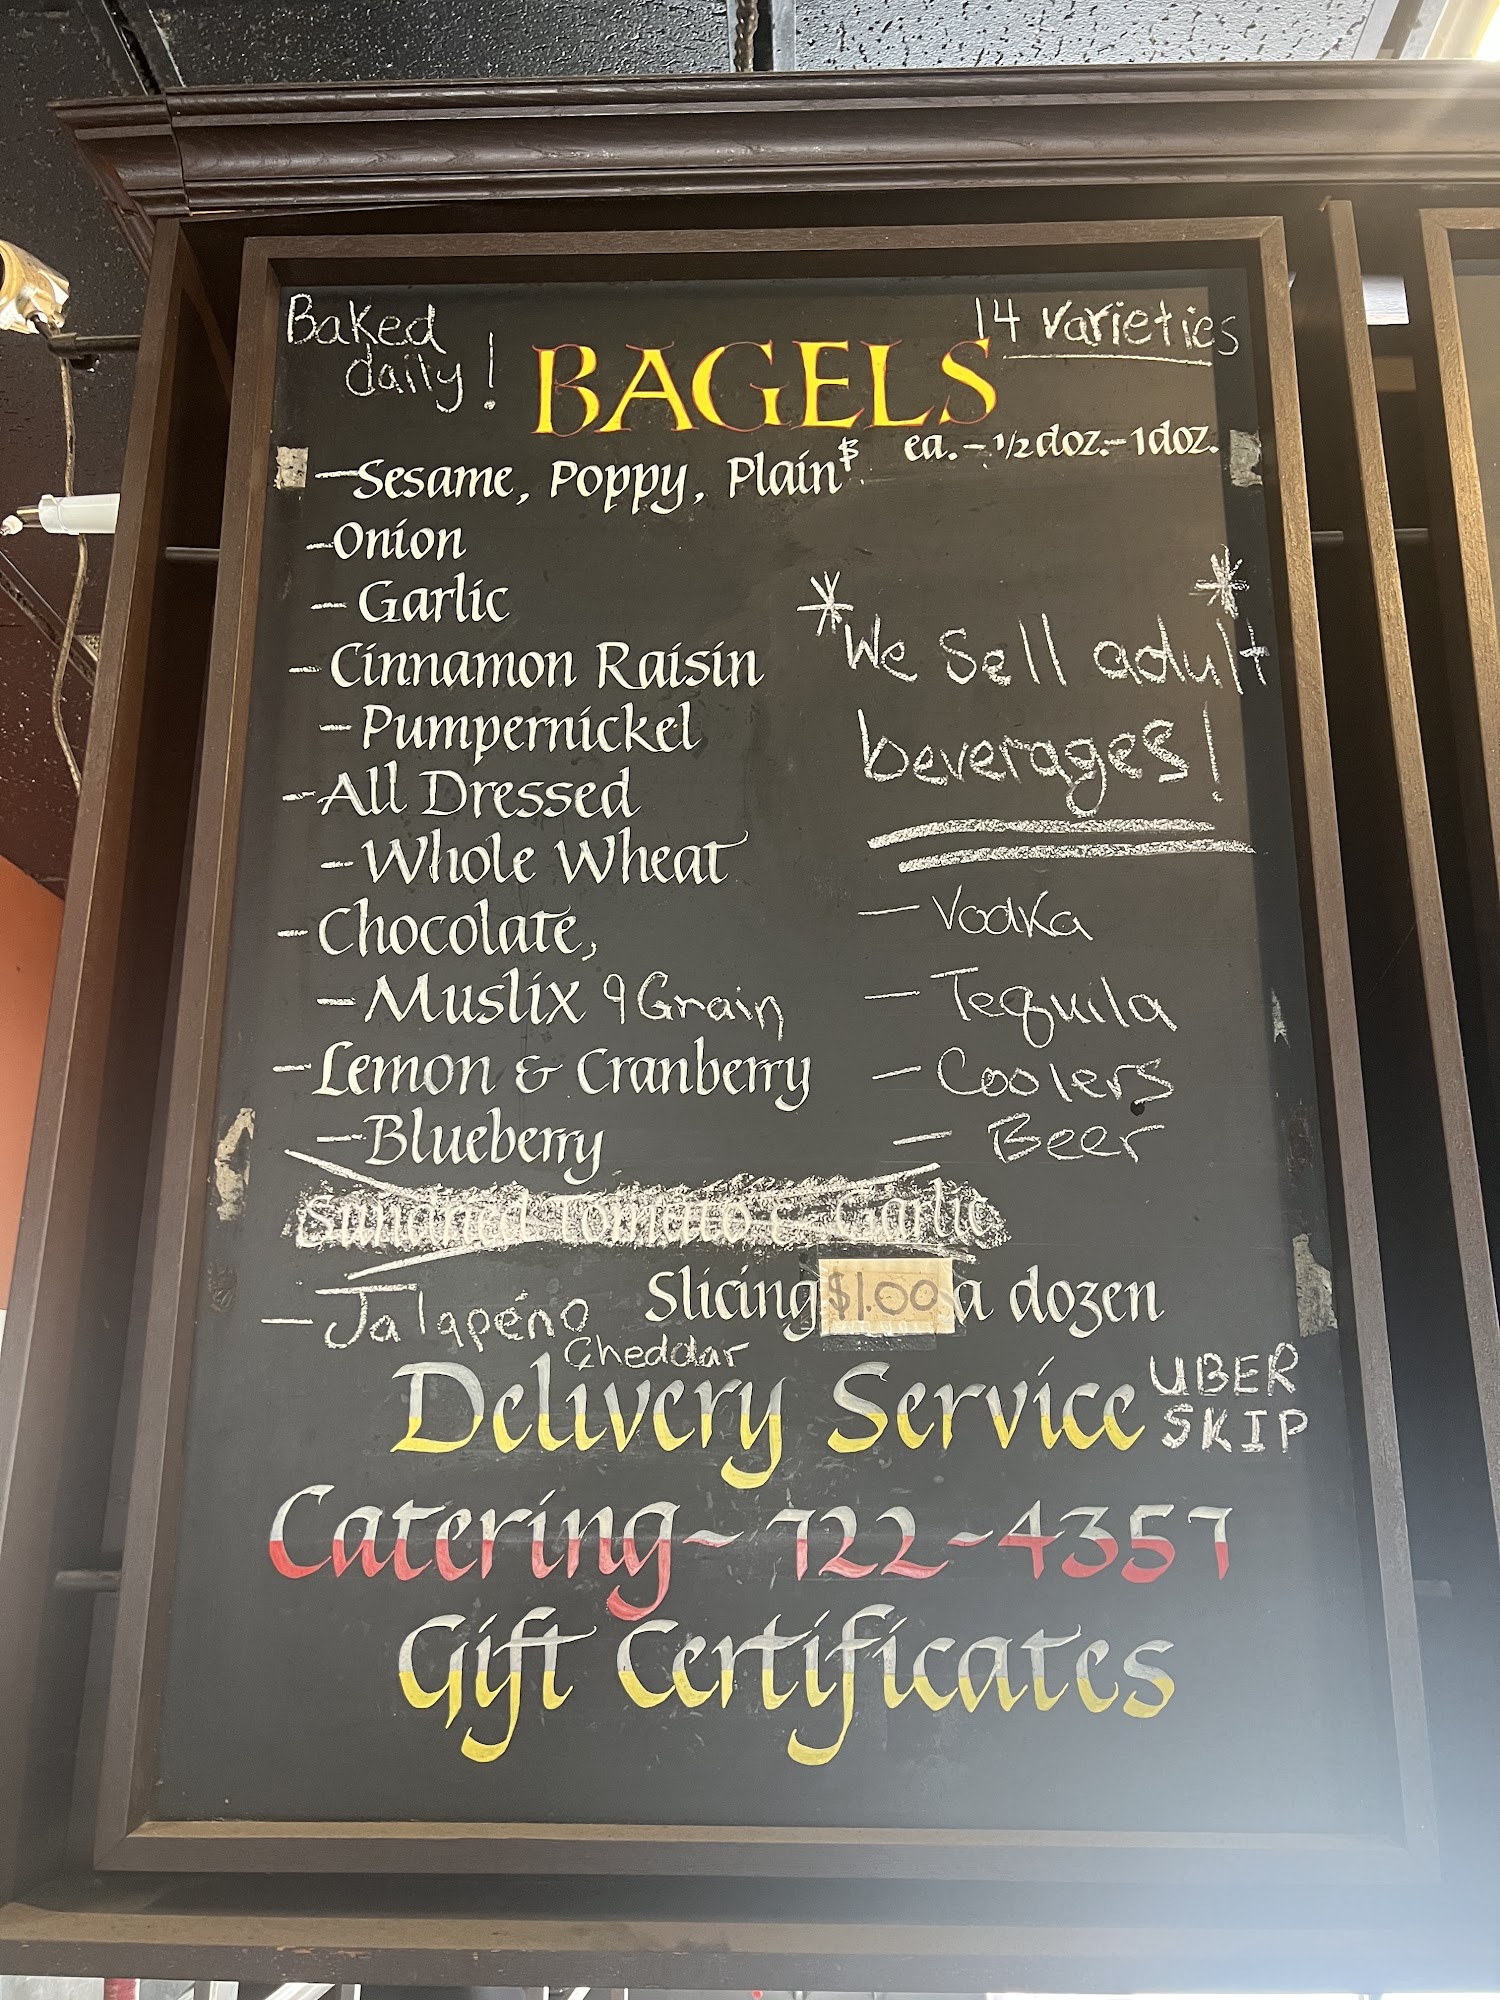 Baked
daily!
14 varieties
BAGELS
ea. – 1/2 doz. – 1 doz.
– Sesame, Poppy, Plain $
– Onion
– Garlic
– Cinnamon Raisin
– Pumpernickel
– All Dressed
– Whole Wheat
– Chocolate,
– Muslix 9 Grain
– Lemon & Cranberry
– Blueberry
Sundried Tomato & Garlic
– Jalapéno
Cheddar
* We Sell adult *
beverages!
– Vodka
– Tequila
– Coolers
– Beer
Slicing $1.00 a dozen
Delivery Service UBER
SKIP
Catering ~ 722-4357
Gift Certificates